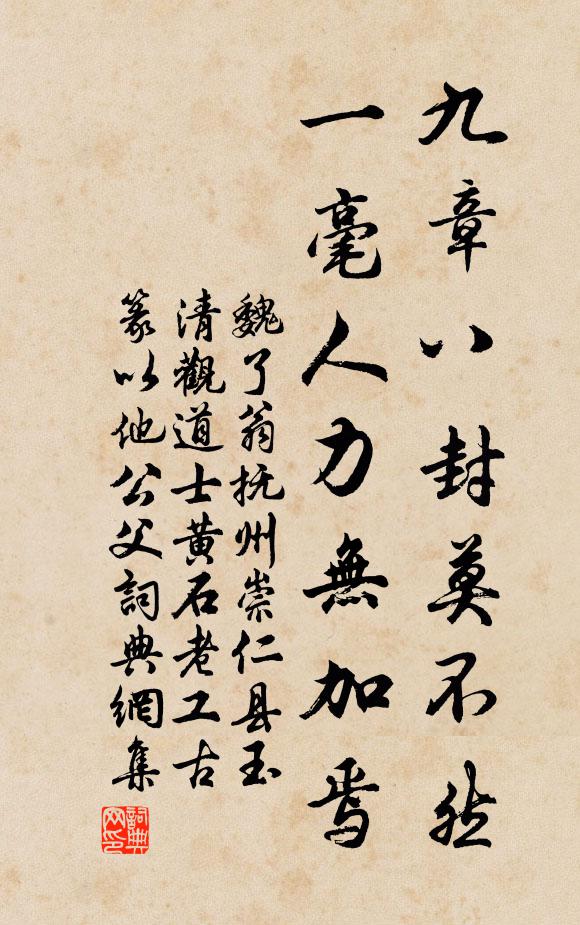 九章八封莫不然
一毫人力無加焉
魏了翁撫州崇仁县玉
清觀道士黄石老工古
篆以他公父詞典網集
詞典网印